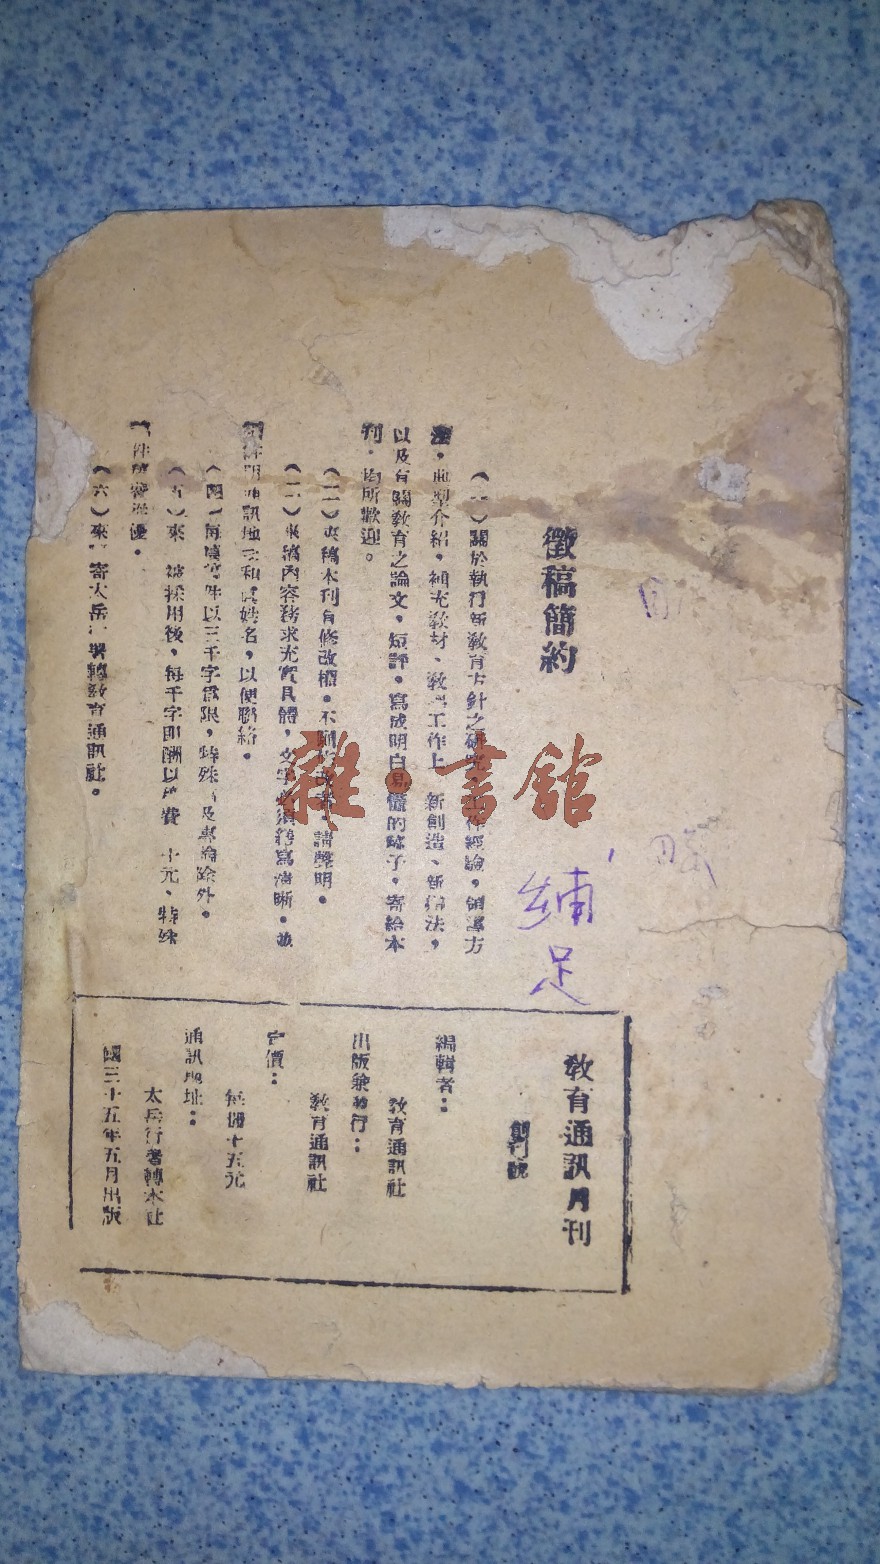 徵稿簡約
（一）關於執行新教育方針之研究，工作經驗，領導方
法，典型介紹，補充教材、教學工作上 新創造、新辦法，
以及有關教育之論文，短評，寫成明白易懂的稿子，寄給本
刊，均所歡迎。
（二）來稿本刊有修改權。不願修改者，請聲明。
（三）來稿內容務求充實具體，文字必須繕寫清晰。並
註明通訊地址和真姓名，以便聯絡。
（四）每篇 以三千字為限，特殊 及專論除外。
（五）來 被採用後，每千字即酬以 費 十元，特殊
件 從優。
（六）來 寄太岳 署轉教育通訊社。
教育通訊月刊
創刊號
編輯者：
教育通訊社
出版兼發行：
教育通訊社
定價：
每冊十五元
通訊地址：
太岳行署轉本社
國三十五年五月出版
補足
雜·書館